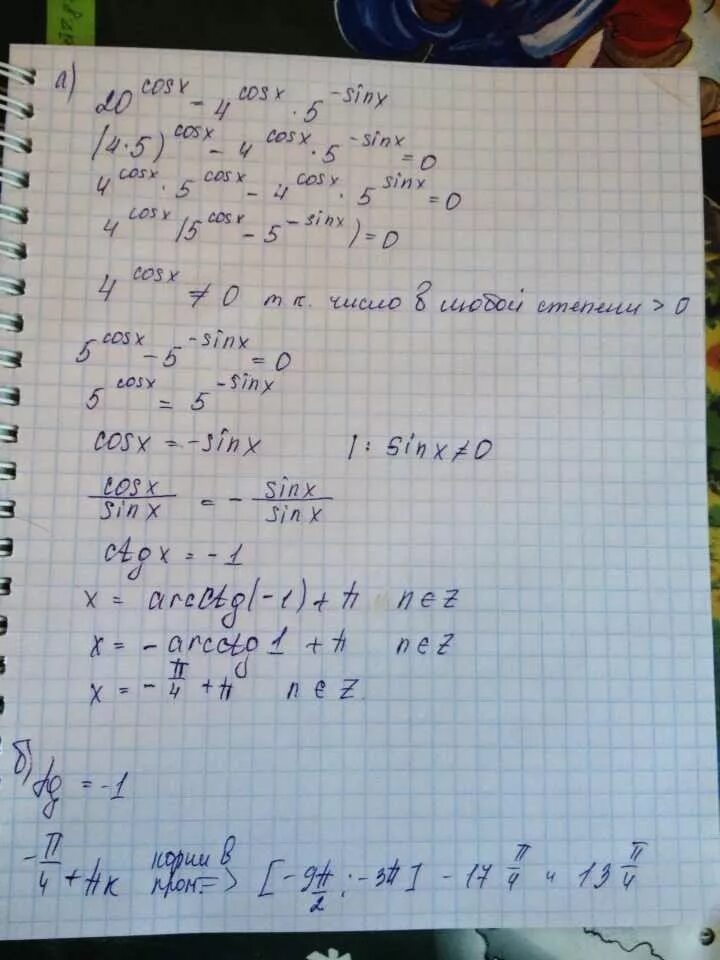 а) 20^cosx - 4^cosx · 5^-sinx
(4·5)^cosx - 4^cosx · 5^-sinx = 0
4^cosx · 5^cosx - 4^cosx · 5^sinx = 0
4^cosx (5^cosx - 5^-sinx) = 0
4^cosx ≠ 0 т.к. число в любой степени > 0
5^cosx - 5^-sinx = 0
5^cosx = 5^-sinx
cosx = -sinx |: sinx ≠ 0
cosx/sinx = - sinx/sinx
ctgx = -1
x = arcctg(-1) + π n ∈ Z
x = - arcctg 1 + π n ∈ Z
x = - π/4 + π n ∈ Z.
б) tg = -1
-π/4 + πk корни в пром. => [-9π/2; -3π] - 17 π/4 и 13 π/4